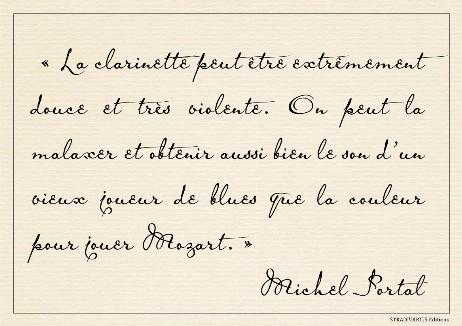 « La clarinette peut être extrêmement
douce et très violente. On peut la
malaxer et obtenir aussi bien le son d'un
vieux joueur de blues que la couleur
pour jouer Mozart. »
Michel Portal
STRADIVARIUS Editions